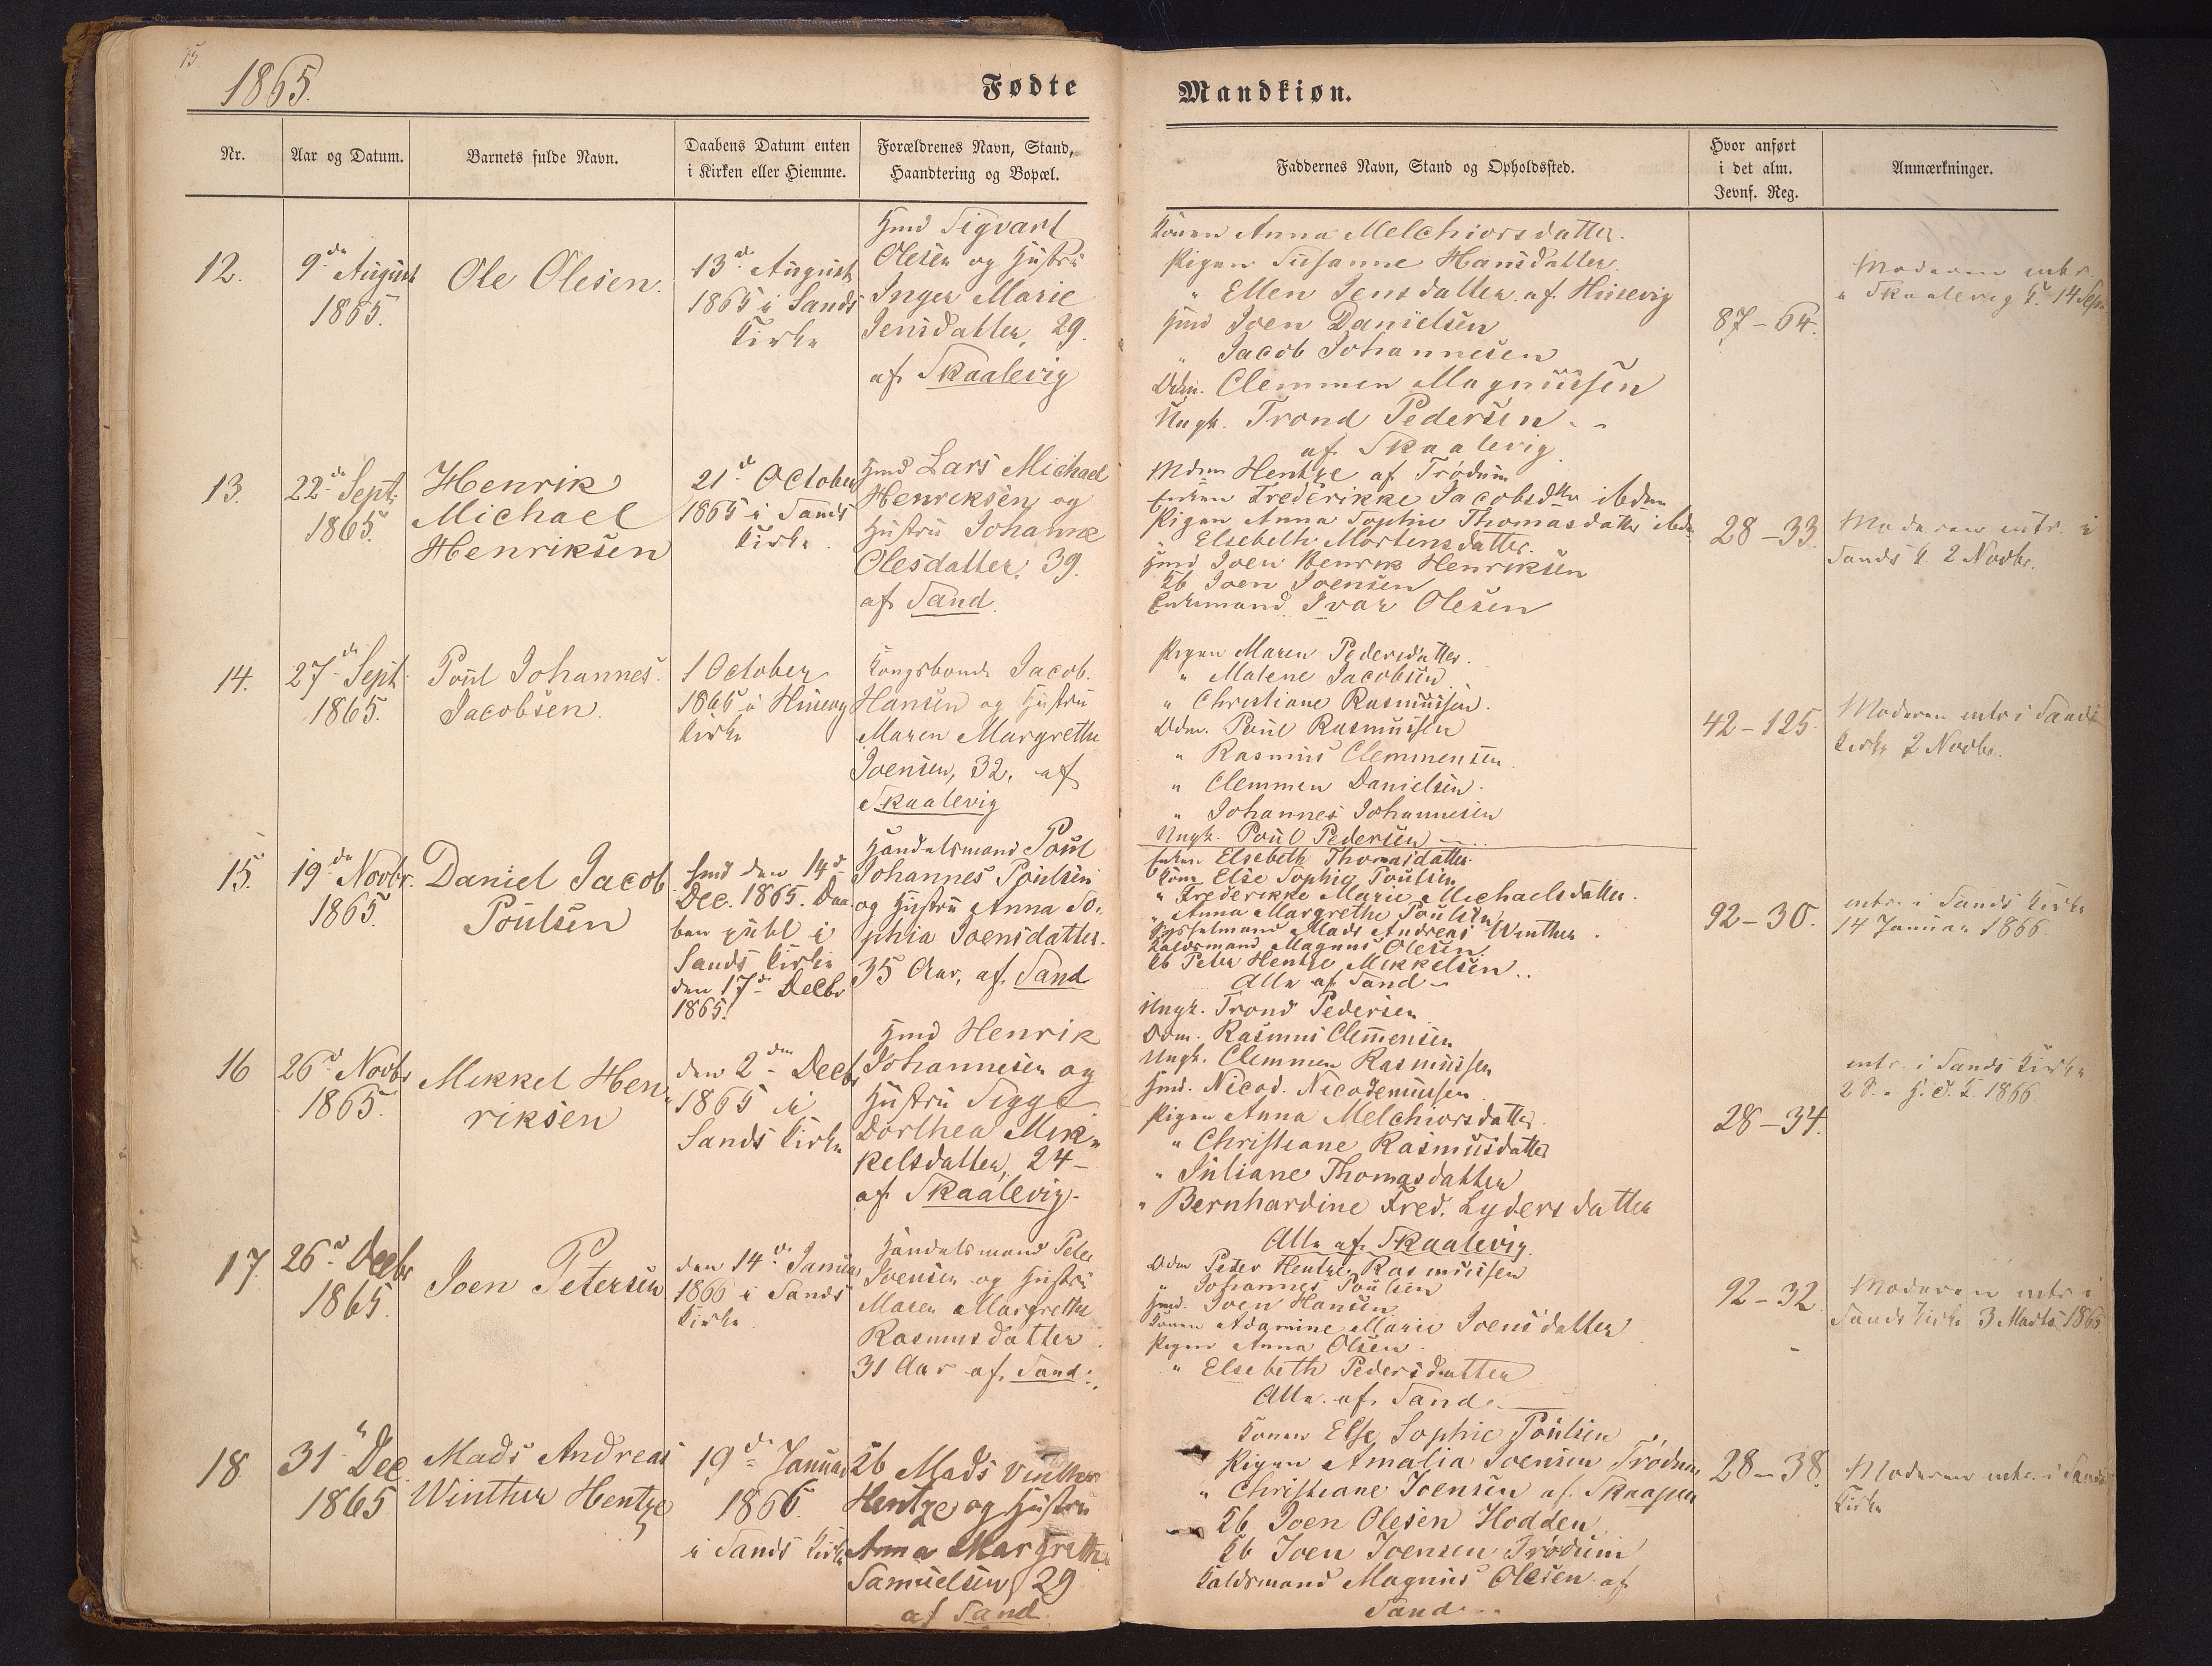 15.
1865.
Fødte
Mandkiøn.
Nr.
Aar og Datum.
Barnets fulde Navn.
Daabens Datum enten
i Kirken eller Hiemme.
Forældrenes Navn, Stand,
Haandtering og Bopæl.
Faddernes Navn, Stand og Opholdssted.
Hvor anført
i det alm.
Jevnf. Reg.
Anmærkninger.
12.
9de August
1865.
Ole Olesen.
13de August
1865 i Sands
Kirke
Hmd Sigvart
Olesen og Hustru
Inger Marie
Jensdatter, 29.
af Skaalevig
Konen Anna Melchiorsdatter.
Pigen Susanne Hansdatter.
" Ellen Jensdatter af Husevig
Hmd Joen Danielsen
" Jacob Johannesen
Ddm. Clemmen Magnussen
Ungk. Trond Pedersen
af Skaalevig
87-64.
Moderen intr.
i Skaalevig K. 14 Sept
13.
22de Sept.
1865.
Henrik
Michael
Henriksen
21de October
1865 i Sands
Kirke.
Hmd Lars Michael
Henriksen og
Hustru Johanne
Olesdatter, 39.
af Sand.
Hentze af Trødum
Enken Frederikke Jacobsdtter ibdm
Pigen Anna Sophie Thomasdatter ibdm
" Elsebeth Mortensdatter.
Hmd Joen Henrik Henriksen
Kb Joen Joensen
Enkemand Ivar Olesen
28-33.
Moderen intr. i
Sands K. 2 Novbr.
14.
27de Sept.
1865.
Poul Johannes
Jacobsen.
1 October
1865 i Husevig
Kirke
Kongsbonde Jacob
Hansen og Hustru
Maren Margrethe
Joensen, 32, af
Skaalevig
Pigen Maren Pedersdatter.
" Malene Jacobsen
" Christiane Rasmussen.
Ddm. Poul Rasmussen
" Rasmus Clemmensen
" Clemmen Danielsen.
" Johannes Johannesen
Ungk. Poul Pedersen
42-125.
Moderen intr i Sands
Kirke 2 Novbr.
15.
19de Novbr.
1865.
Daniel Jacob
Poulsen
hmd den 14de
Dec. 1865. Daa-
ben publ i
Sands Kirke
den 17de Decbr
1865.
Handelsmand Poul
Johannes Poulsen
og Hustru Anna So-
phia Joensdatter.
35 Aar, af Sand
Enken Elsebeth Thomasdatter.
Kone Else Sophie Poulsen
" Frederikke Marie Michaelsdatter.
" Anna Margrethe Poulsen
Sysselmand Mads Andreas Winther.
Magnus Olesen.
Kb Peter Hentze Mikkelsen
Alle af Sand
92-30.
intr. i Sands Kirke
14 Januar 1866.
16
26de Novbr
1865.
Mikkel Hen-
riksen
den 2den Decbr
1865 i
Sands Kirke
Hmd Henrik
Johannesen og
Hustru Sigge
Dorthea Mik-
kelsdatter, 24
af Skaalevig.
Ungk. Trond Pedersen
Ddm. Rasmus Clemensen
Ungk. Clemmen Rasmussen
Hmd. Nicod. Nicodemussen
Pigen Anna Melchiorsdatter.
" Christiane Rasmusdatter
" Juliane Thomasdatter
" Bernhardine Fred. Lydersdatter
Alle af Skaalevig.
28-34.
intr. i Sands Kirke
1866.
17.
26de Decbr
1865.
Joen Petersen
den 14de Januar
1866 i Sands
Kirke
Handelsmand Peter
Joensen og Hustru
Maren Margrethe
Rasmusdatter
31 Aar af Sand.
Ddm Peder Hentze Rasmussen
" Johannes Poulsen
Hmd. Joen Hansen
Konen Adamine Marie Joensdatter
Pigen Anna Olsen.
" Elsebeth Pedersdatter
Alle af Sand
92-32.
Moderen intr i
Sands Kirke 3 Marts 1866
18
31te Dec
1865
Mads Andreas
Winther Hentze
19de Januar
1866.
i Sands Kirke
Kb Mads Vinther
Hentze og Hustru
Anna Margrethe
Samuelsen, 29
af Sand
Konen Else Sophie Poulsen
Pigen Amalia Joensen Trødum
" Christiane Joensen af Skaapen
Kb Joen Olesen Hodden
Kb Joen Joensen Trødum
Magnus Olesen af
Sand
28-38.
Moderen intr. i Sands
Kirke